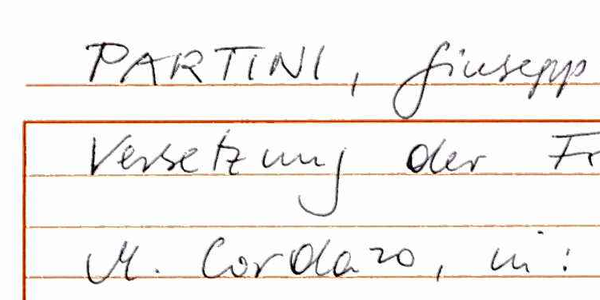 PARTINI, Giusepp
Versetzung der Fr
M. Cordazo, in: